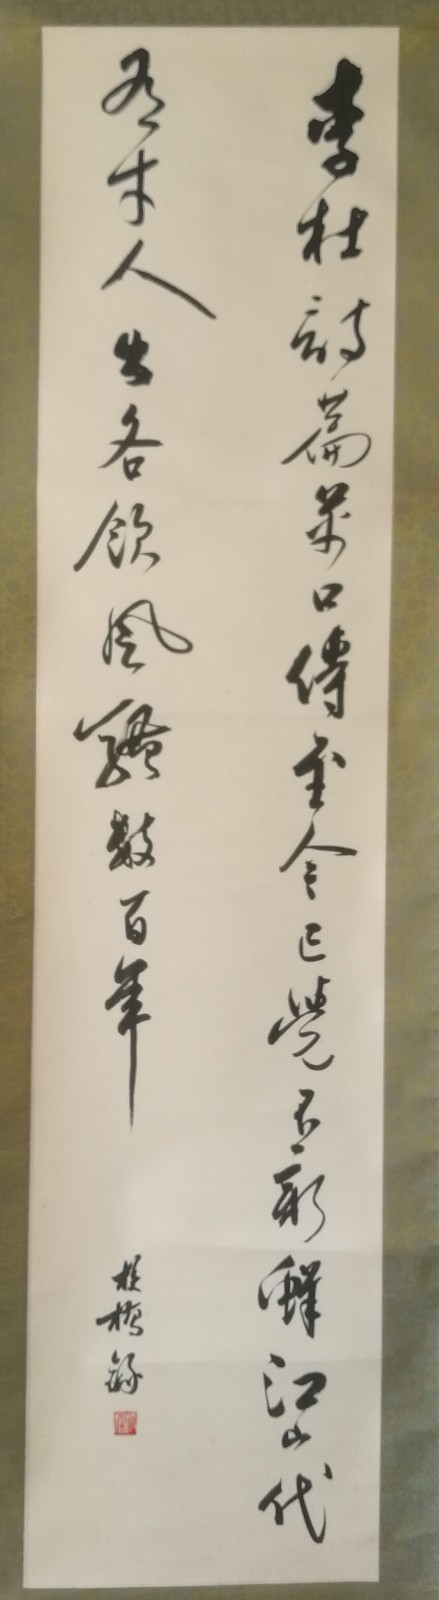 李杜詩篇萬口傳至今已覺不新鮮江山代
有才人出各領風騷數百年
錄